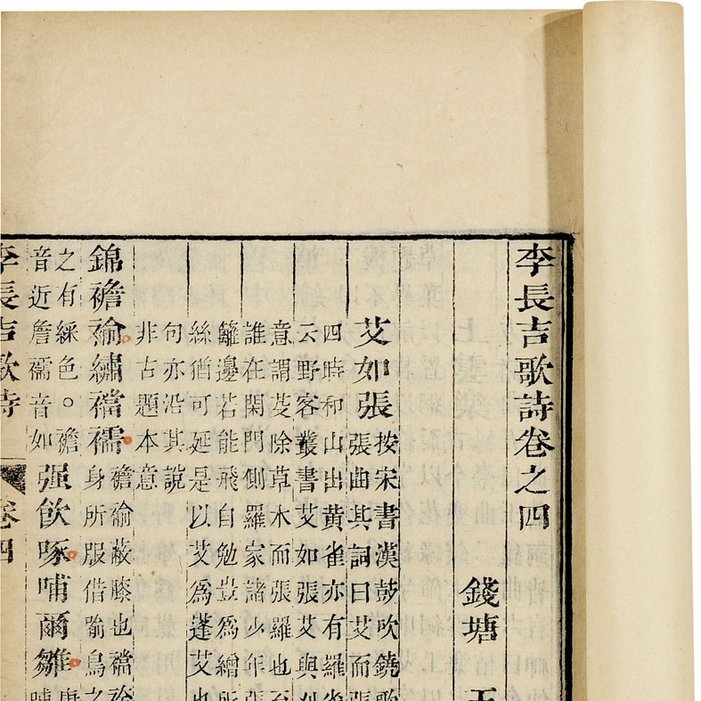 李長吉歌詩卷之四
錢塘
艾如張
按宋書漢鼓吹鐃歌
張曲其詞曰艾而張
四時和山出黃雀亦有羅
云野客叢書艾如張艾與
意謂芟除草木而張羅也
誰在閑門側羅家諸少年
籬邊若能飛自勉豈爲繒
絲猶可延是以艾爲蓬艾
句亦沿其說
非古題本意
錦襜褕繡襠襦
襜褕蔽膝也襠
身所服借喻鳥之
之有綵色。襜
音近詹襦音如
强飮啄哺爾雛
李長吉歌詩 卷四